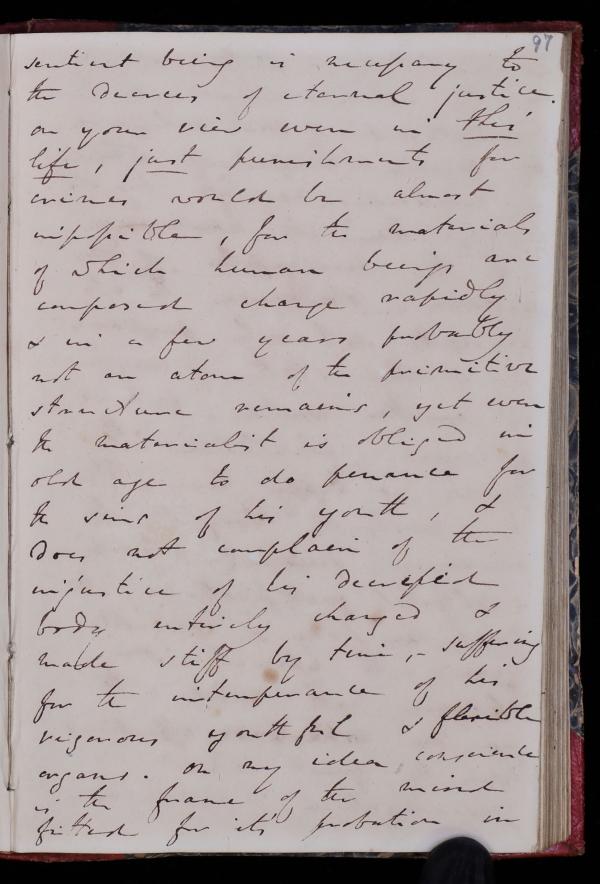 97
sentient being is necessary to
the decrees of eternal justice.
on your view even in this
life, just punishments for
crimes would be almost
impossible, for the materials
of which human beings are
composed change rapidly
& in a few years probably
not an atom of the primitive
structure remains, yet even
the materialist is obliged in
old age to do penance for
the sins of his youth, &
does not complain of the
injustice of his decrepid
body entirely changed &
made stiff by time, - suffering
for the intemperance of his
vigorous youthful & flexible
organs. On my idea conscience
is the frame of the mind
fitted for its probation in